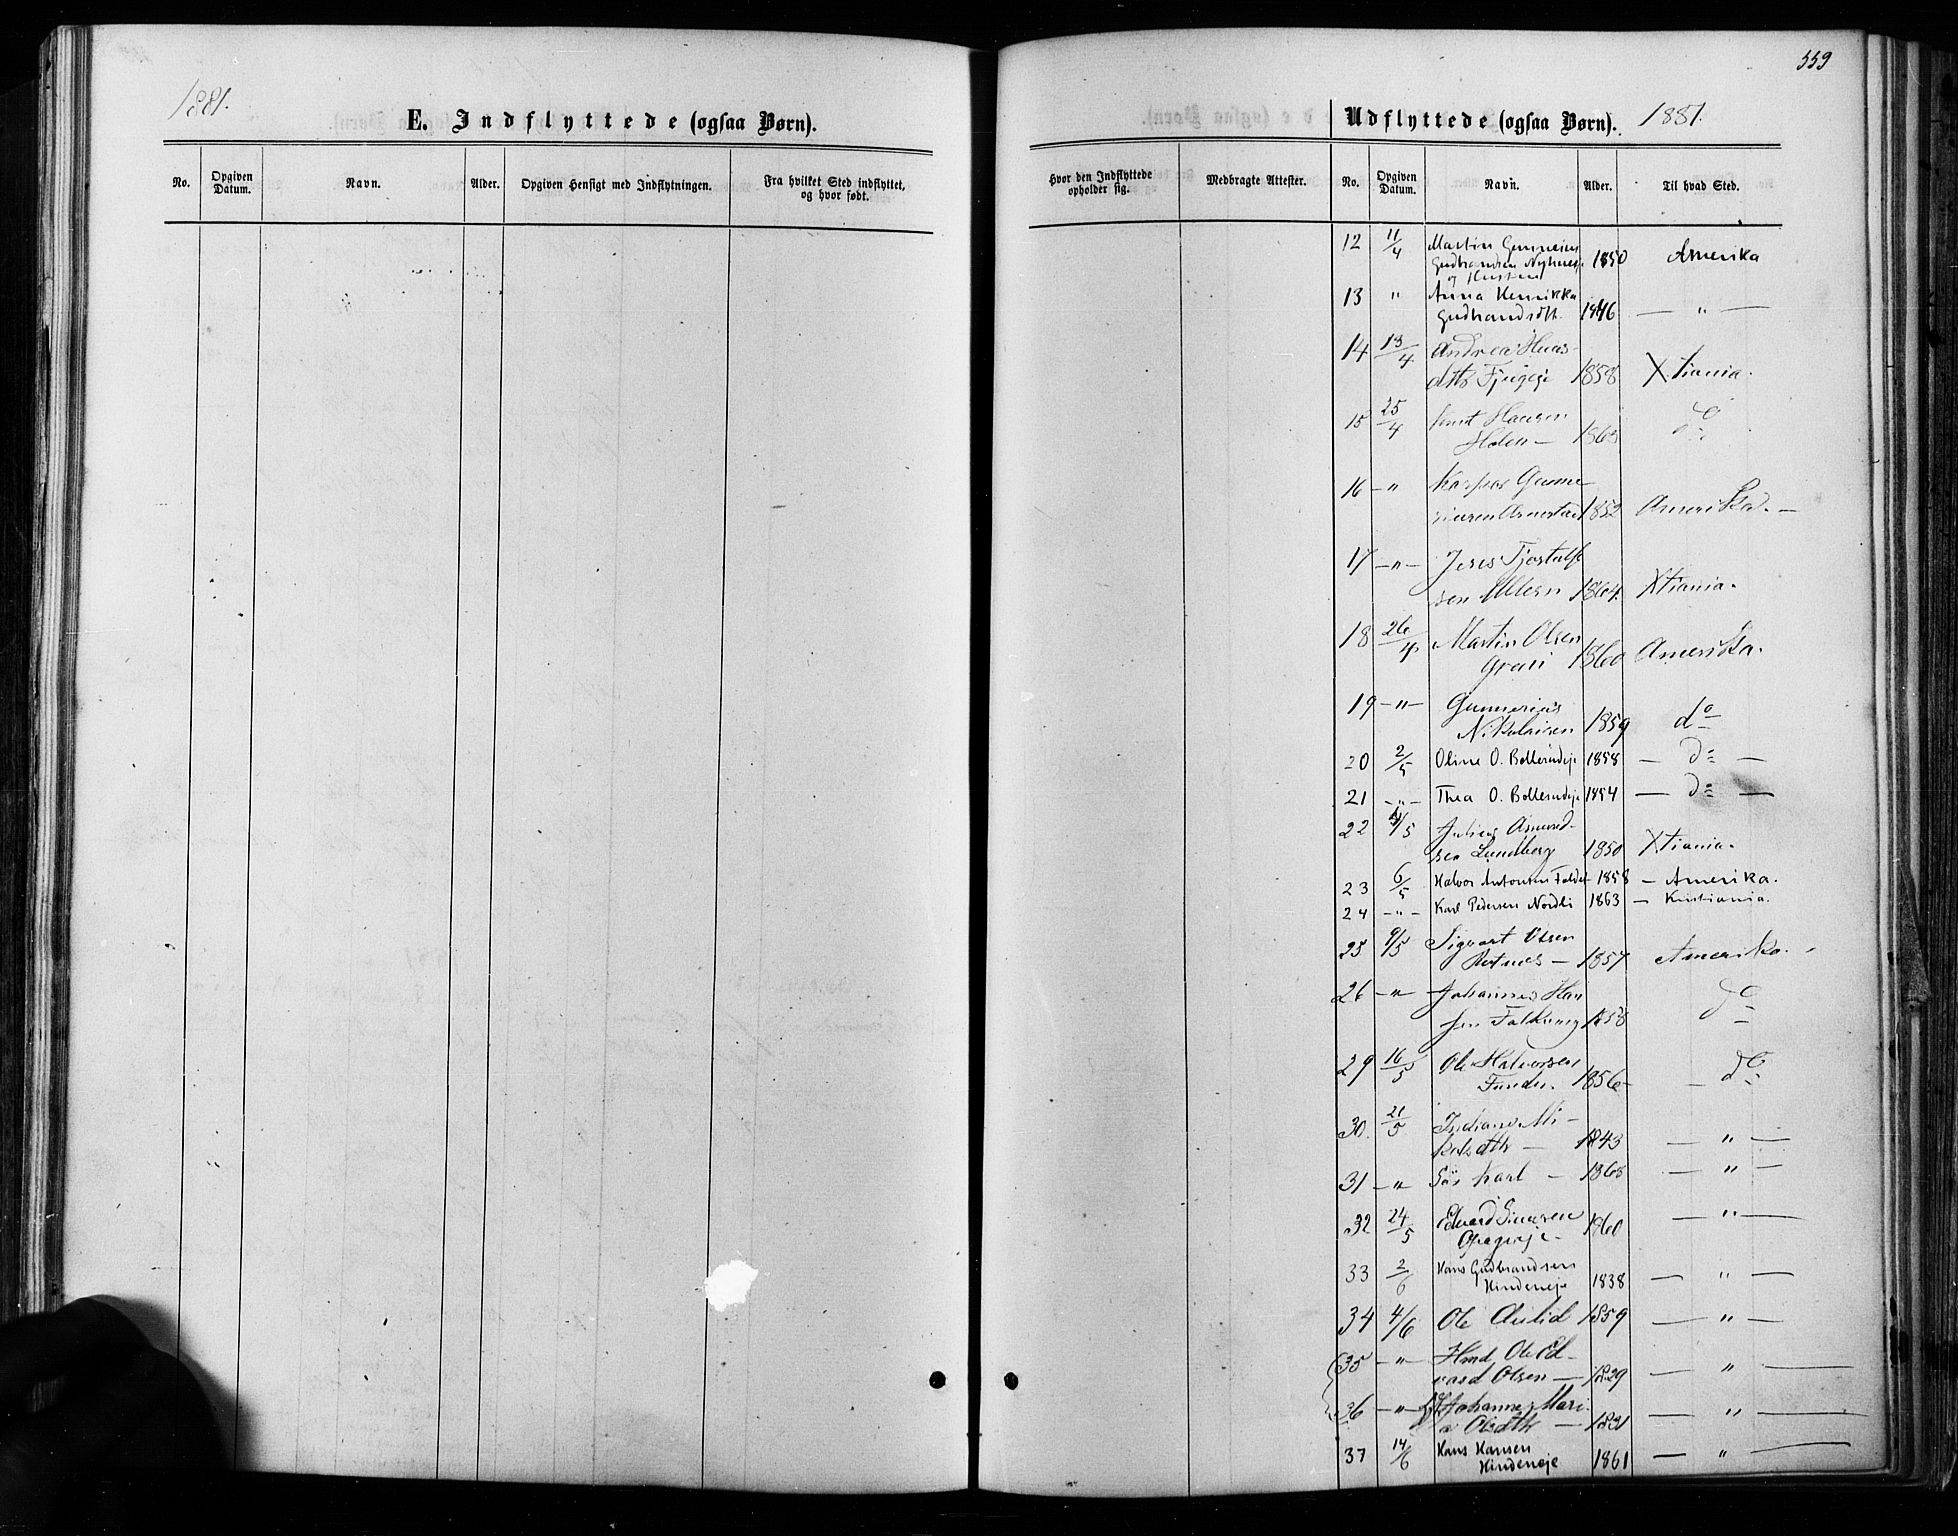 559
1881.
E. Indflyttede (ogsaa Børn).
No.
Opgiven Datum.
Navn.
Alder.
Opgiven Hensigt med Indflytningen.
Fra hvilket Sted indflyttet, og hvor født.
Udflyttede (ogsaa Børn). 1881.
Hvor den Indflyttede opholder sig.
Medbragte Attester.
No.
Opgiven Datum.
Navn.
Alder.
Til hvad Sted.
12 11/4 Martin
Gudbrandsen 1850 Amerika
13 " Anna Henrikka
Gudbrandsdtr. 1846 — " —
14 13/4 Andrea
dtr 1858 Xtiania.
15 25/4 Knut Hansen
Holen — 1863 do
16 — " Kaspar Gunne
riusen 1852 Amerika. —
17 — " — Jens Tjostolf
sen 1864. Xtiania.
18 26/4 Martin Olsen
1860 Amerika.
19 — " — Gunnerius
Nikolaisen 1859 do
20 2/5 Oline O. Bollerudeje 1858 — do —
21 — " — Thea O. Bollerudeje 1854 — do —
22 4/5 Julius Amund-
sen Lundberg 1850 Xtiania.
23 6/5 Halvor Antonsen Faldet 1858 — Amerika.
24 — " — Karl Pedersen Nordli 1863 — Kristiania.
25 9/5 Sigvart Olsen
Rotnes — 1857 Amerika.
26 — " — Johannes Han
sen 1858 do
29 16/5 Ole Halvorsen
1856 — do
30. 21/5 Indiane Mi-
kelsdtr — 1843 — " —
31 — " Karl — 1868 — " —
32 24/5 Edvard Simensen
1860 — " —
33 2/6 Hans Gudbrandsen
Hindeneje 1838 — " —
34 4/6 Ole Aulid 1859 — " —
35 — " — Ole Ed-
vard Olsen — 1829 — " —
36 — " — Johanne Mari-
a Olsdtr — 1831 — " —
37 14/6 Hans Hansen
Hindeneje 1861 — " —